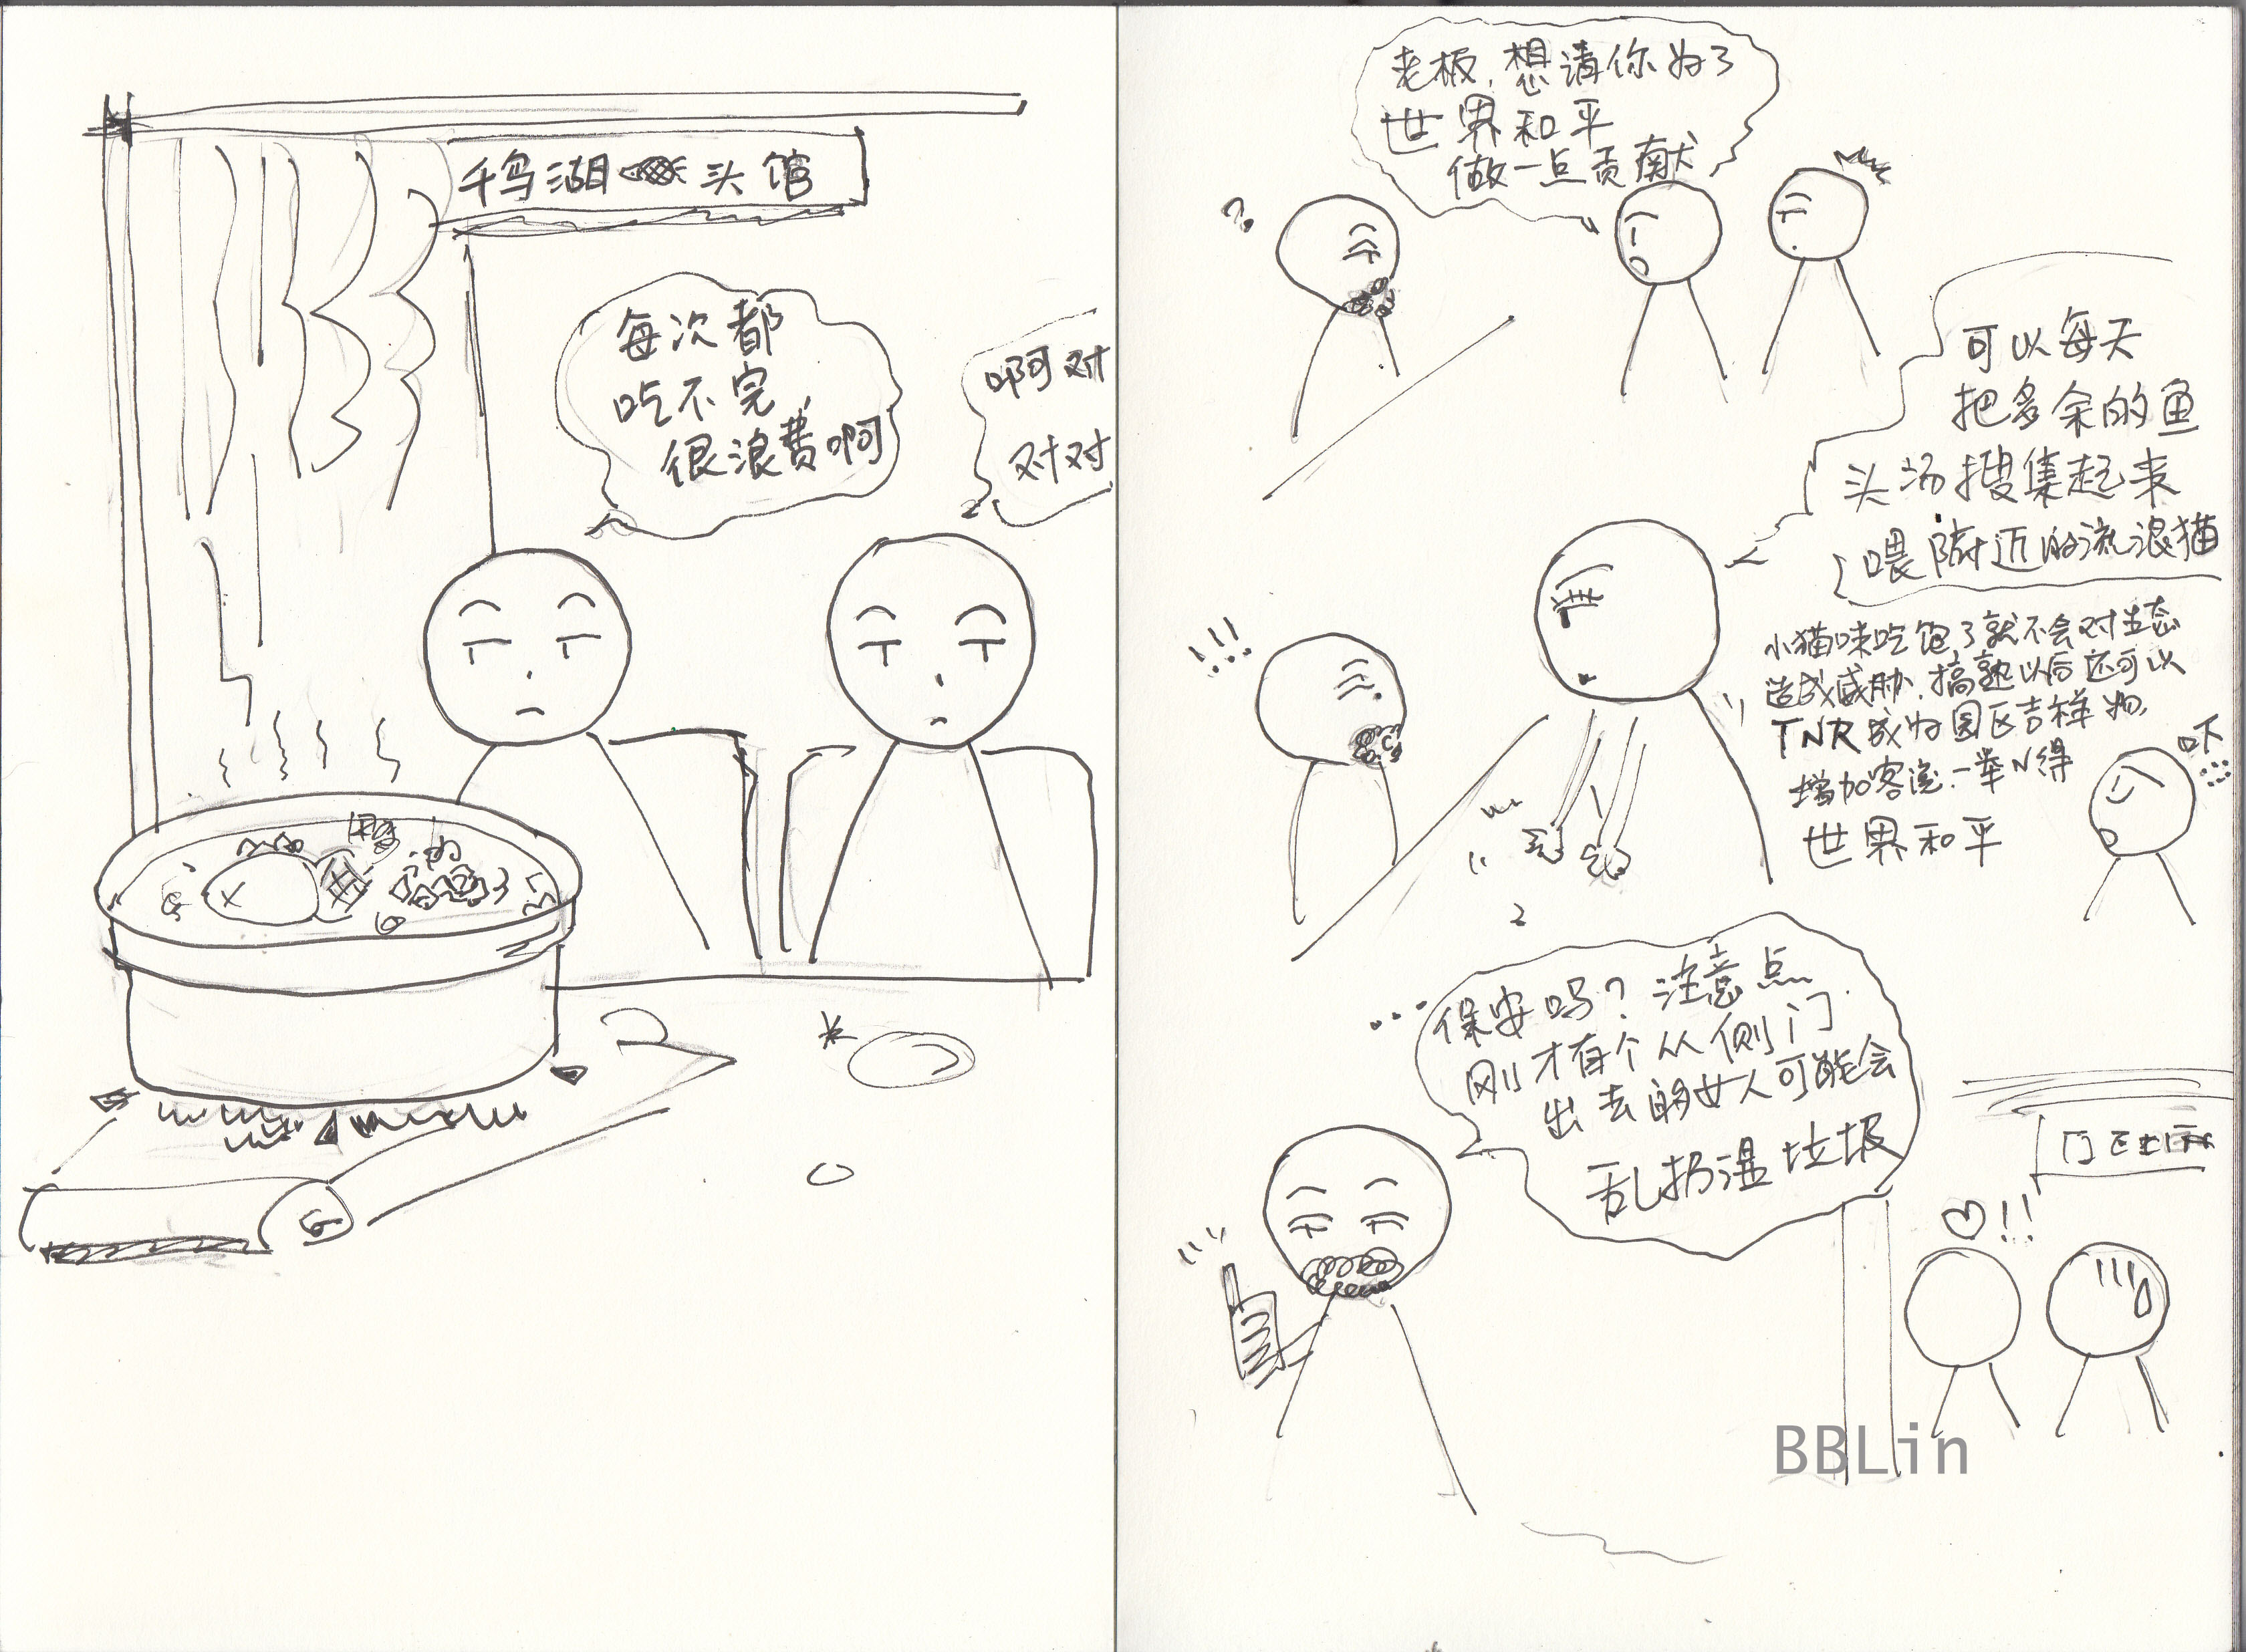 千鸟湖头馆
每次都
吃不完,
很浪费啊
啊对
对对
老板,想请你为了
世界和平
做一点贡献
?
可以每天
把多余的鱼
头汤搜集起来
喂附近的流浪猫
!!!
小猫咪吃饱了就不会对生态
造成威胁,搞熟以后还可以
TNR成为园区吉祥物,
增加客流.一举N得
世界和平
...保安吗?注意点
刚才有个从侧门
出去的女人可能会
乱扔湿垃圾
!!
BBLin